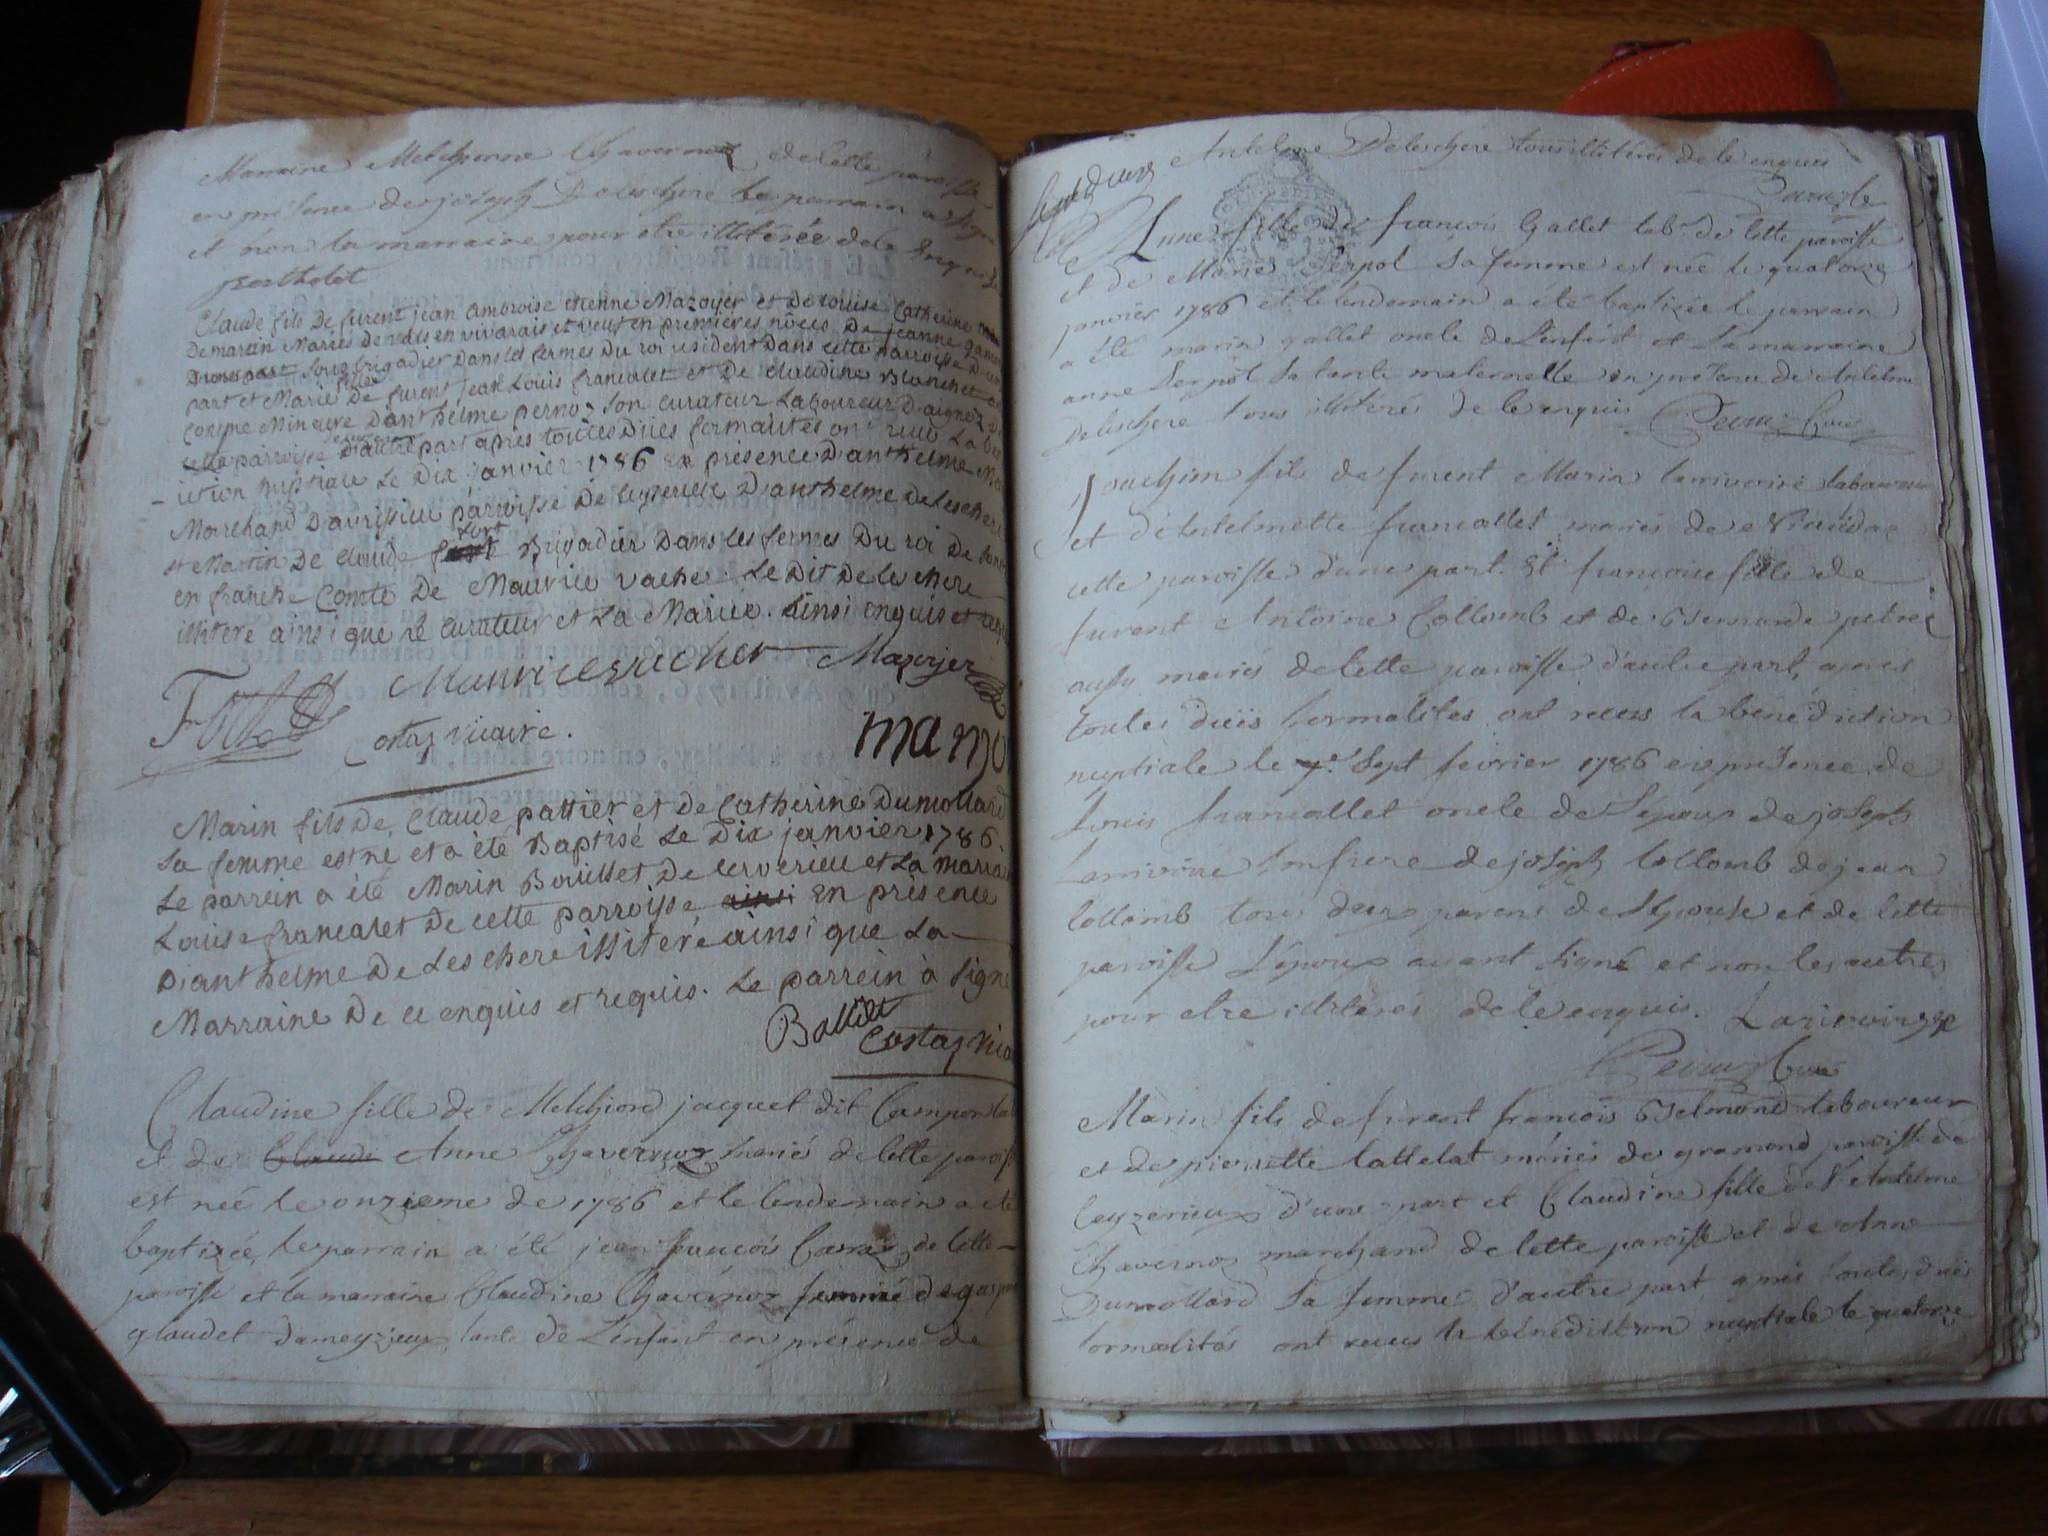 Marraine Melchionne Chavernoz de cette paroisse
en présence de joseph Deleschere Le parrain a signé
et non la marraine pour etre illitérée de le enquise
Bertholet
Claude fils de furent jean ambroise etienne Mazoyer et de Louise Catherine
De martin Mariés de vals en vivarais et veuf en premières nôces De jeanne
D'une part sous brigadier Dans les fermes Du roi resident Dans cette parroisse D'une
part et Marie fille De furent jean Louis francalet et De claudine Blanchet
Danthelme pernoz son curateur Laboureur D'aignoz De
cette parroisse D'autre part apres toutes Dues formalités ont reçu La béné
-iction nuptiale Le Dix janvier 1786 en présence D'anthelme
Marchand D'avrissieu parroisse De ceyzerieu D'anthelme De Leschere
et Martin De claude fort Brigadier Dans Les fermes Du roi De
en franche Comté De Maurice vacher. Le Dit De Leschere
illitere ainsi que le curateur et La Mariée. Ainsi enquis et requis
Mauricevacher Mazoyer
Costaz vicaire.
Marin fils De Claude pattier et De Catherine Dumollard
sa femme est né et a été Baptisé Le Dix janvier 1786.
Le parrein a été Marin Bouillet De cerverieu et La marraine
Louise francalet De cette parroisse ainsi en présence
D'anthelme De Leschere illiteré ainsi que La
Marraine De ce enquis et requis. Le parrein à signé
Costaz vica
Claudine fille de Melchiord jacquet dit Campon
et de Claude Anne Chavernoz mariés de cette paroisse
est née le onzieme de 1786 et le lendemain a été
baptizée, le parrain a été jean françois Carraz de cette
paroisse et la marraine Claudine Chavernoz femme de gaspard
glaudet dameyzieux tante de L'enfant en présence de
Antelme Deleschere tous illitérés de le enquis
Anne fille de françois Gallet labr de cette paroisse
et de Marie Serpol sa femme est née le quatorze
janvier 1786 et le lendemain a été baptizée le parrain
a été marin gallet oncle de L'enfant et La marraine
anne Serpol sa tante maternelle en présence de Antelme
Deleschere tous illiteré de le enquis
Joachim fils de furent Marin Larrivoire laboureur
et d'Antelmette francallet mariés de
cette paroisse d'une part. Et françoise fille de
furent Antoine Collomb et de Bernarde
aussy mariés de cette paroisse d'autre part, après
toutes dues formalités ont recus la bénédiction
nuptiale le Sept fevrier 1786 en présence de
Louis francallet oncle de L'époux de joseph
Larrivoire son frere de joseph Collomb de jean
Collomb tous deux parens de L'épouse et de cette
paroisse L'époux ayant signé et non les autres
pour etre illitérés de le enquis. Larrivoire
Marin fils de furent françois Belmond laboureur
et de pierrette Cattelat mariés de gramond paroisse de
Ceyzerieux d'une part et Claudine fille de Sr Antelme
Chavernoz marchand de cette paroisse et de Anne
Dumollard sa femme d'autre part après toutes dues
formalités ont recus la bénédiction nuptiale le quatorze